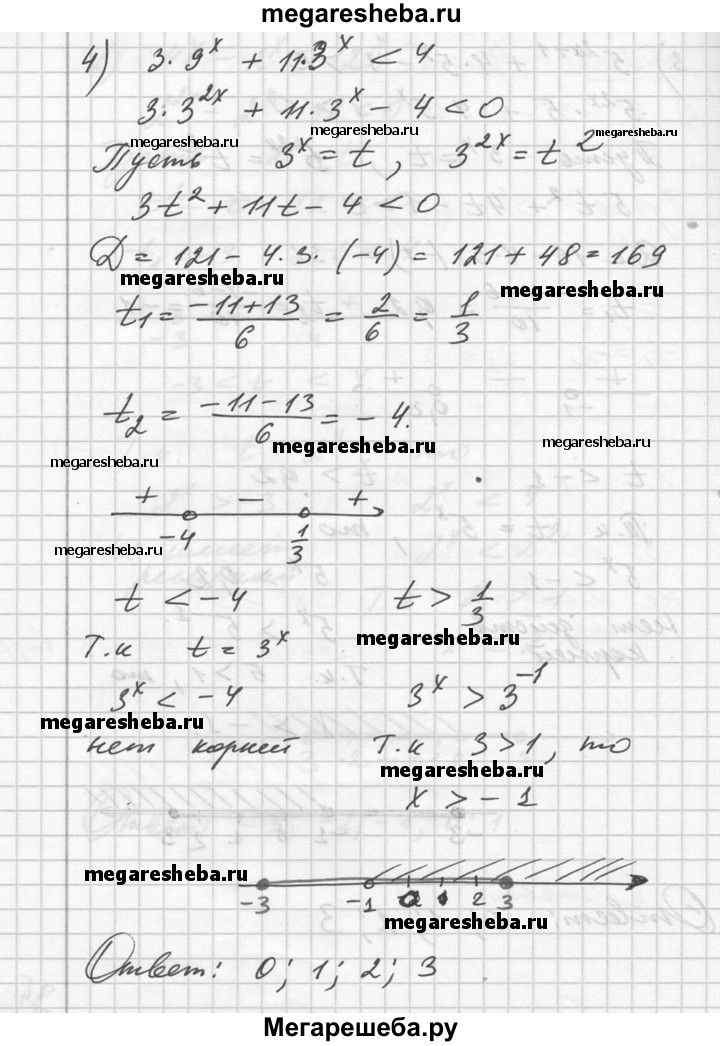 megaresheba.ru
4) 3·9^x + 11·3^x < 4
3·3^{2x} + 11·3^x − 4 < 0
megaresheba.ru megaresheba.ru megaresheba.ru
Пусть 3^x = t, 3^{2x} = t^2
3t^2 + 11t − 4 < 0
D = 121 − 4·3·(−4) = 121 + 48 = 169
megaresheba.ru megaresheba.ru
t_1 = \frac{−11+13}{6} = \frac{2}{6} = \frac{1}{3}
t_2 = \frac{−11−13}{6} = −4.
megaresheba.ru megaresheba.ru
megaresheba.ru
+ − +
−4 \frac{1}{3}
megaresheba.ru
t < −4 t > \frac{1}{3}
megaresheba.ru
Т.к t = 3^x
3^x < −4 3^x > 3^{−1}
megaresheba.ru
нет корней Т.к 3 > 1, то
megaresheba.ru
x > −1
megaresheba.ru
−3 −1 0 1 2 3
megaresheba.ru
Ответ: 0; 1; 2; 3
Мегарешеба.ру